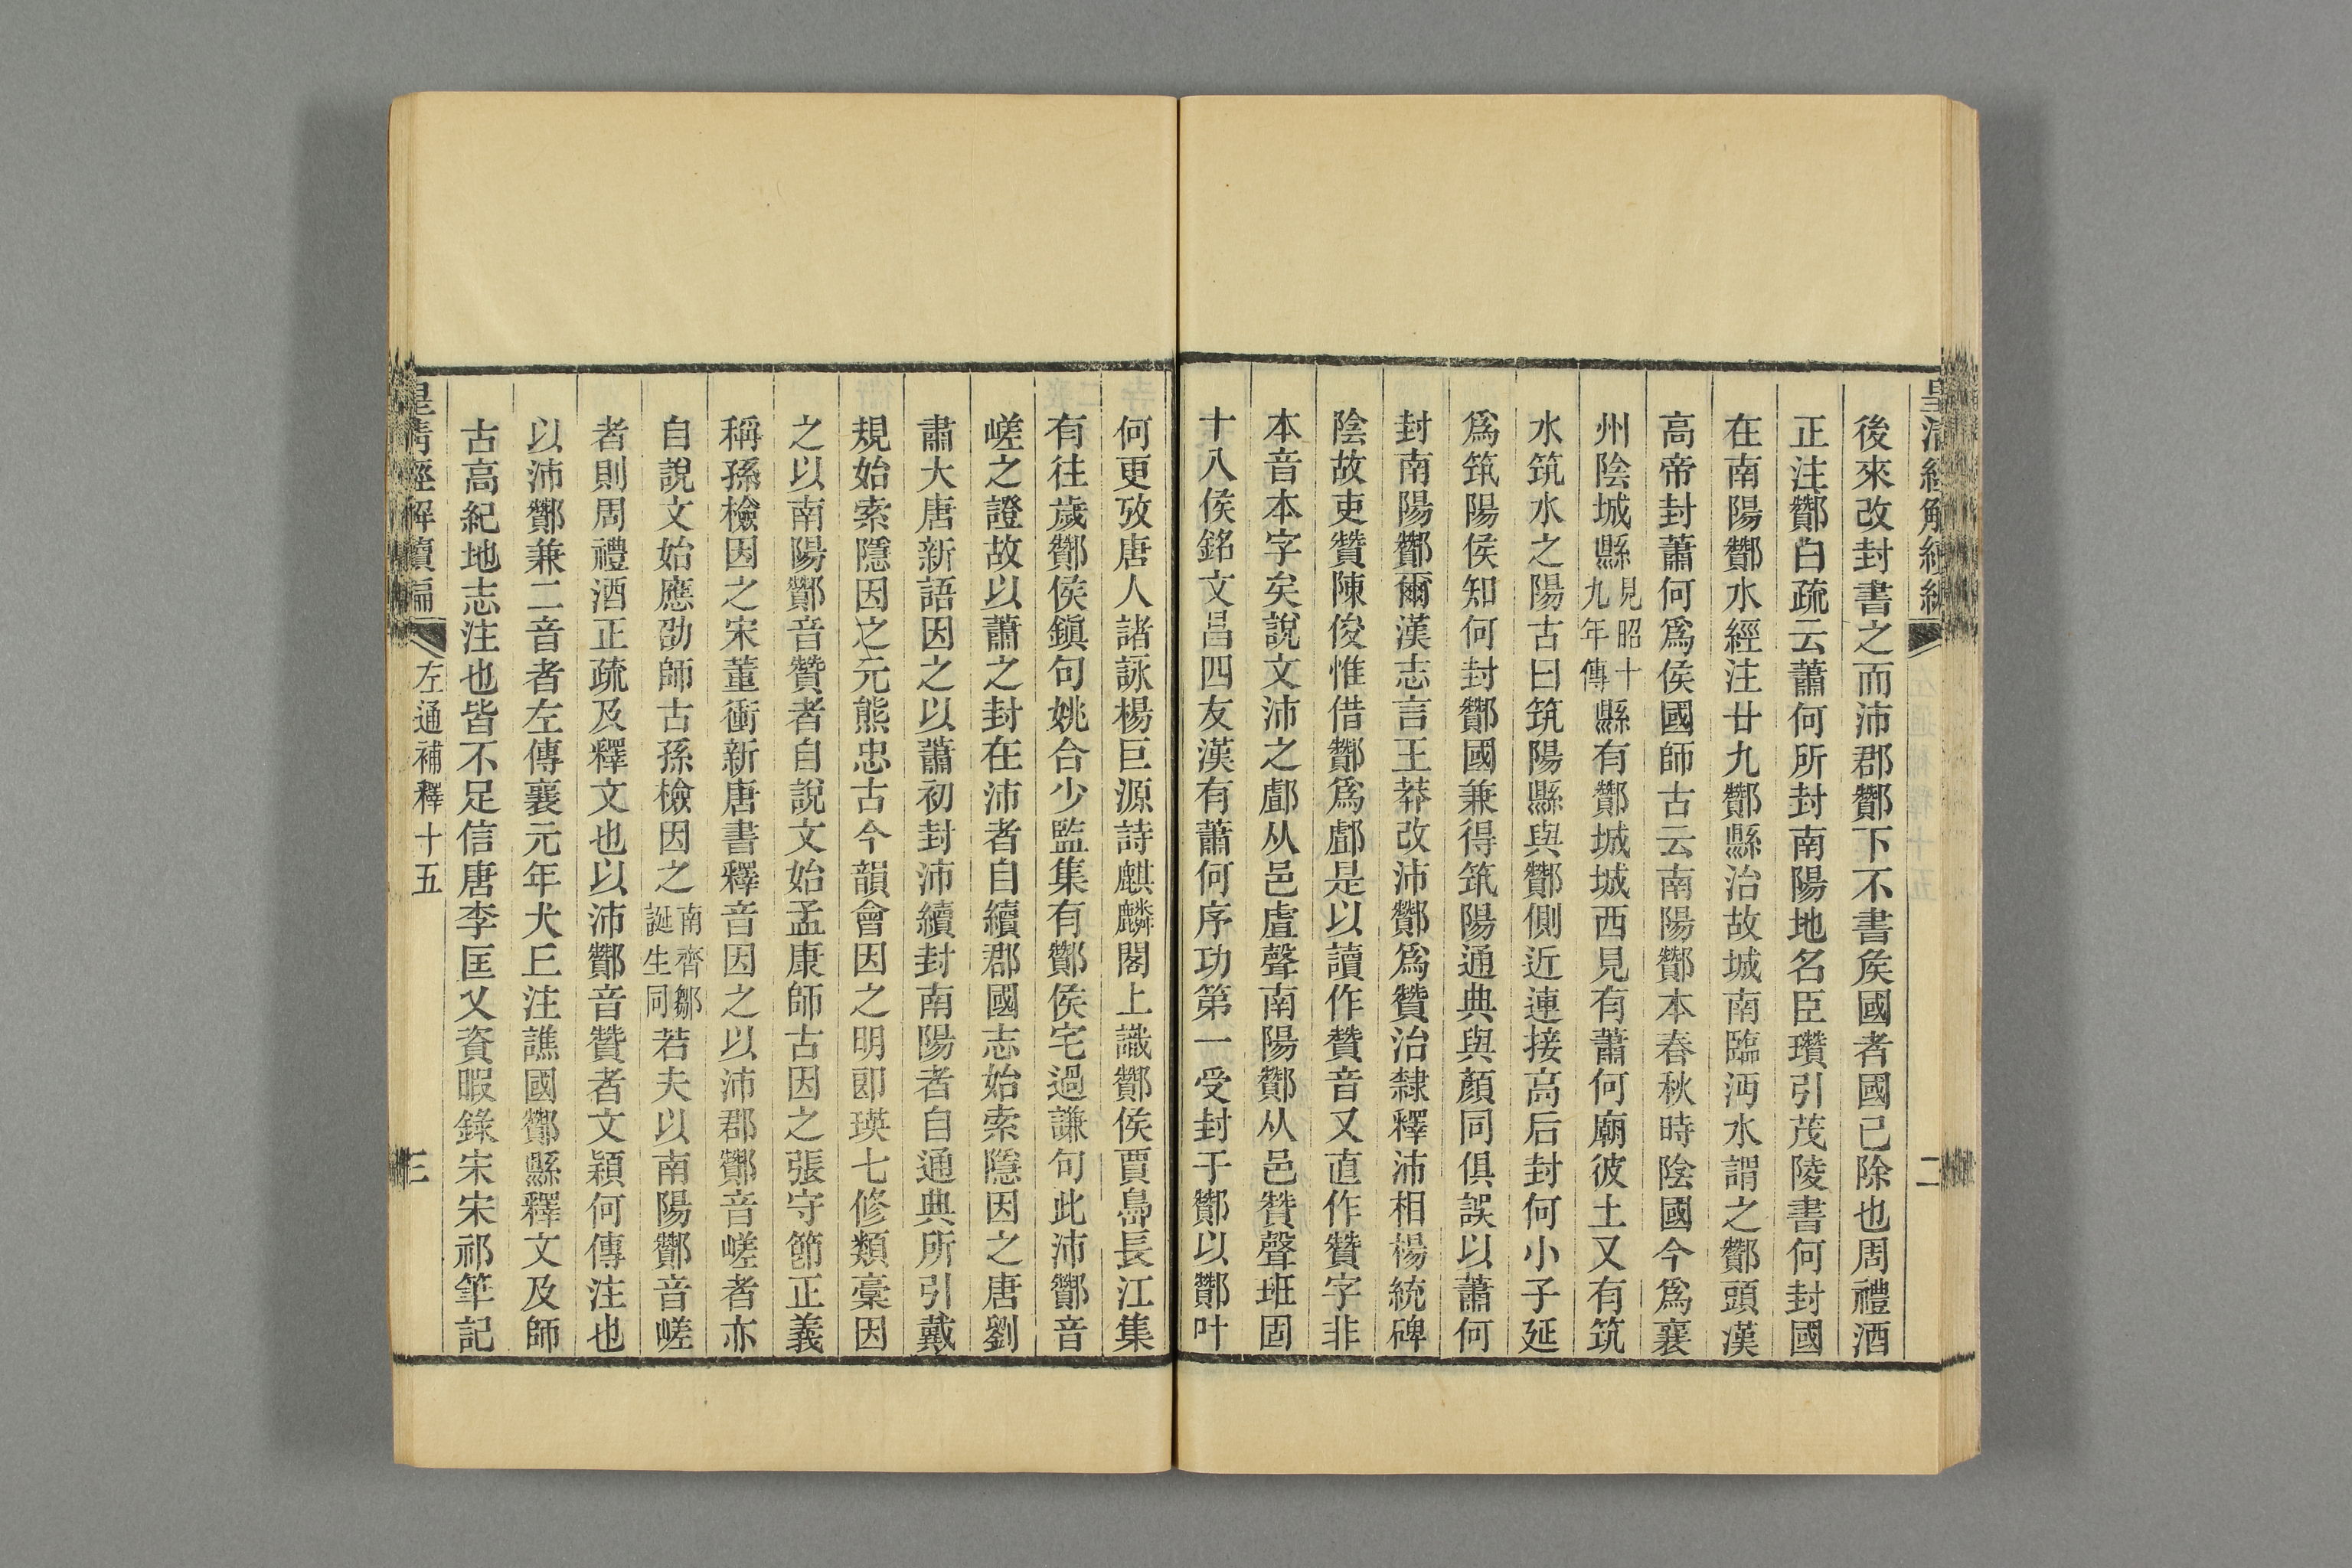 皇清經解續編
二
後來改封書之而沛郡酇下不書矦國者國已除也周禮酒
正注酇白疏云蕭何所封南陽地名臣瓚引茂陵書何封國
在南陽酇水經注廿九酇縣治故城南臨沔水謂之酇頭漢
高帝封蕭何爲侯國師古云南陽酇本春秋時陰國今爲襄
州陰城縣見昭十九年傳縣有酇城城西見有蕭何廟彼土又有筑
水筑水之陽古曰筑陽縣與酇側近連接高后封何小子延
爲筑陽侯知何封酇國兼得筑陽通典與顏同俱誤以蕭何
封南陽酇爾漢志言王莽改沛酇爲贊治隸釋沛相楊統碑
陰故吏贊陳俊惟借酇爲酂是以讀作贊音又直作贊字非
本音本字矣說文沛之䣜从邑虘聲南陽酇从邑贊聲班固
十八侯銘文昌四友漢有蕭何序功第一受封于酇以酇叶
何更攷唐人諸詠楊巨源詩麒麟閣上識酇侯賈島長江集
有往歲酇侯鎭句姚合少監集有酇侯宅過謙句此沛酇音
嵯之證故以蕭之封在沛者自續郡國志始索隱因之唐劉
肅大唐新語因之以蕭初封沛續封南陽者自通典所引戴
規始索隱因之元熊忠古今韻會因之明郎瑛七修類稾因
之以南陽酇音贊者自說文始孟康師古因之張守節正義
稱孫檢因之宋董衝新唐書釋音因之以沛郡酇音嵯者亦
自說文始應劭師古孫檢因之南齊鄒誕生同若夫以南陽酇音嵯
者則周禮酒正疏及釋文也以沛酇音贊者文穎何傳注也
以沛酇兼二音者左傳襄元年犬丘注譙國酇縣釋文及師
古高紀地志注也皆不足信唐李匡乂資暇錄宋宋祁筆記
皇清經解續編
左通補釋十五
三